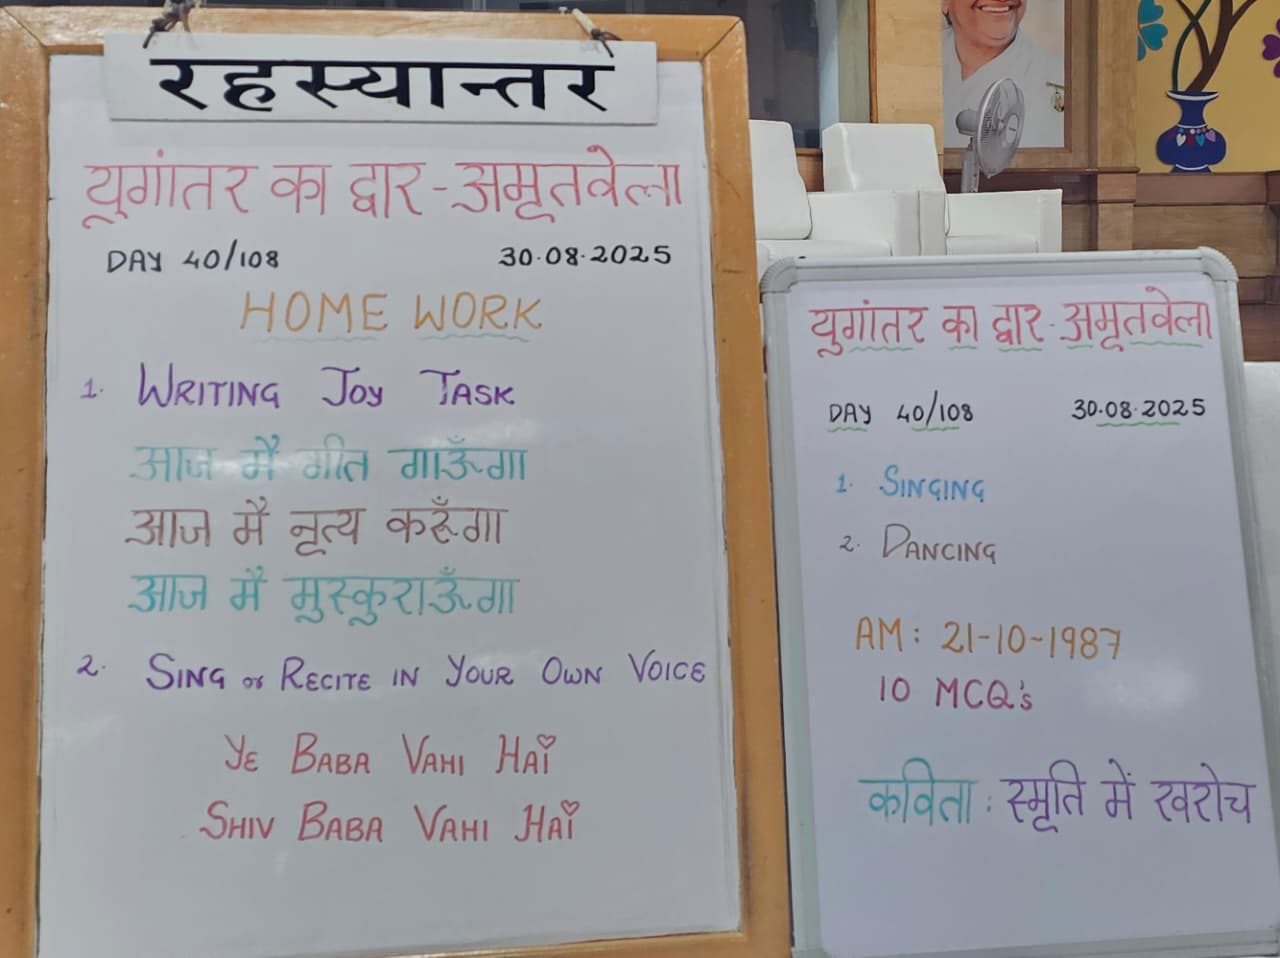 रहस्यान्तर
युगांतर का द्वार - अमृतवेला
DAY 40/108 30.08.2025
HOME WORK
1. WRITING JOY TASK
आज मैं गीत गाऊँगा
आज मैं नृत्य करूँगा
आज मैं मुस्कुराऊँगा
2. SING or RECITE IN YOUR OWN VOICE
YE BABA VAHI HAI
SHIV BABA VAHI HAI
युगांतर का द्वार - अमृतवेला
DAY 40/108 30.08.2025
1. SINGING
2. DANCING
AM: 21-10-1987
10 MCQ's
कविता : स्मृति में खरोच